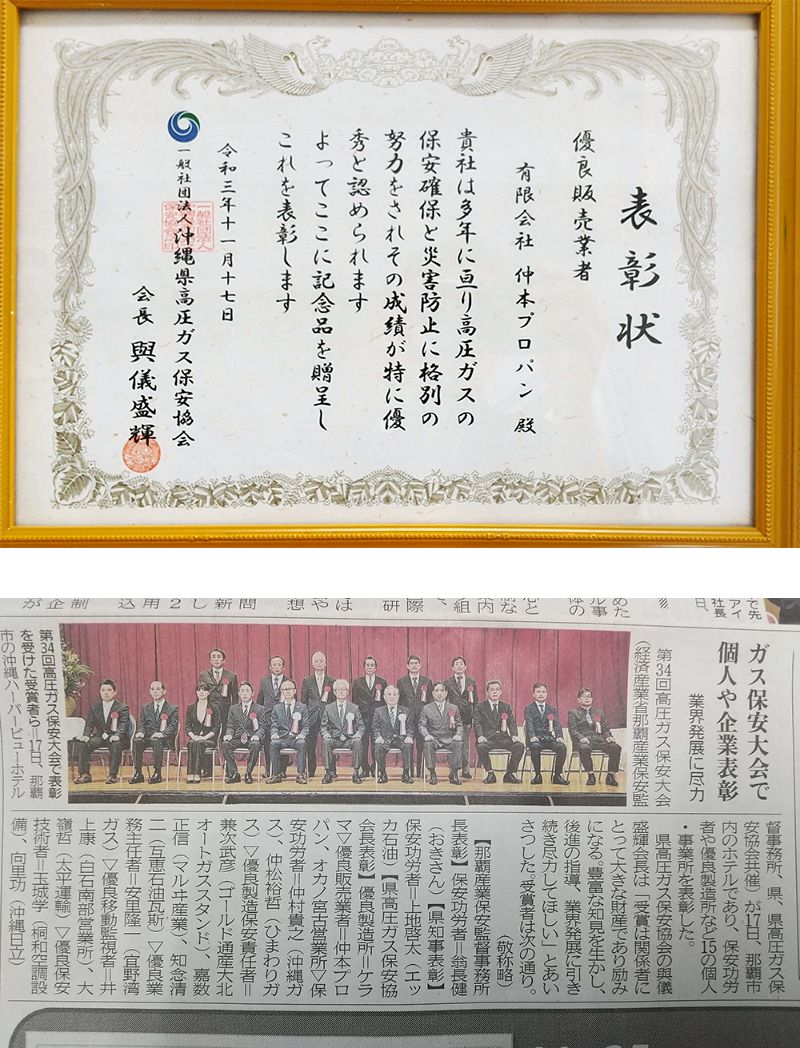 表彰状
優良販売業者
有限会社 仲本プロパン 殿
貴社は多年に亘り高圧ガスの
保安確保と災害防止に格別の
努力をされその成績が特に優
秀と認められます
よってここに記念品を贈呈し
これを表彰します
令和三年十一月十七日
一般社団法人沖縄県高圧ガス保安協会
会長 與儀盛輝
ガス保安大会で
個人や企業表彰
業界発展に尽力
第34回高圧ガス保安大会
(経済産業省那覇産業保安監
督事務所、県、県高圧ガス保
安協会共催)が17日、那覇市
内のホテルであり、保安功労
者や優良製造所など15の個人
・事業所を表彰した。
県高圧ガス保安協会の與儀
盛輝会長は「受賞は関係者に
とって大きな財産であり励み
になる。豊富な知見を生かし、
後進の指導、業界発展に引き
続き尽力してほしい」とあい
さつした。受賞者は次の通り。
(敬称略)
【那覇産業保安監督事務所
長表彰】保安功労者=翁長健
(おきさん)【県知事表彰】
保安功労者=上地啓太(エッ
カ石油)【県高圧ガス保安協
会長表彰】優良製造所=ケラ
マ▽優良販売業者=仲本プロ
パン、オカノ宮古営業所▽保
安功労者=仲村貴之(沖縄ガ
ス)、仲松裕哲(ひまわりガ
ス)▽優良製造保安責任者=
兼次武彦(ゴールド通産大北
オートガススタンド)、嘉数
正信(マルヰ産業)、知念清
二(互恵石油瓦斯)▽優良業
務主任者=安里隆一(宜野湾
ガス)▽優良移動監視者=井
上康(白石南部営業所)、大
嶺哲(太平運輸)▽優良保安
技術者=玉城学(桐和空調設
備)、向里功(沖縄日立)
第34回高圧ガス保安大会で表彰
を受けた受賞者ら=17日、那覇
市の沖縄ハーバービューホテル